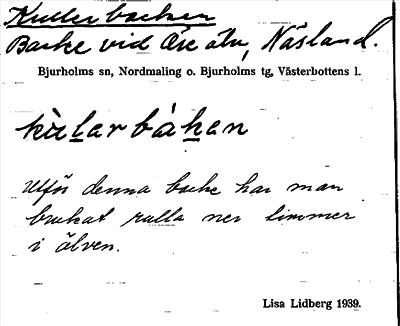 Kullerbacken
Backe vid Öre älv, Näsland.
Bjurholms sn, Nordmaling o. Bjurholms tg, Västerbottens l.
kùlarbàkan
Utför denna backe har man
brukat rulla ner timmer
i älven.
Lisa Lidberg 1939.